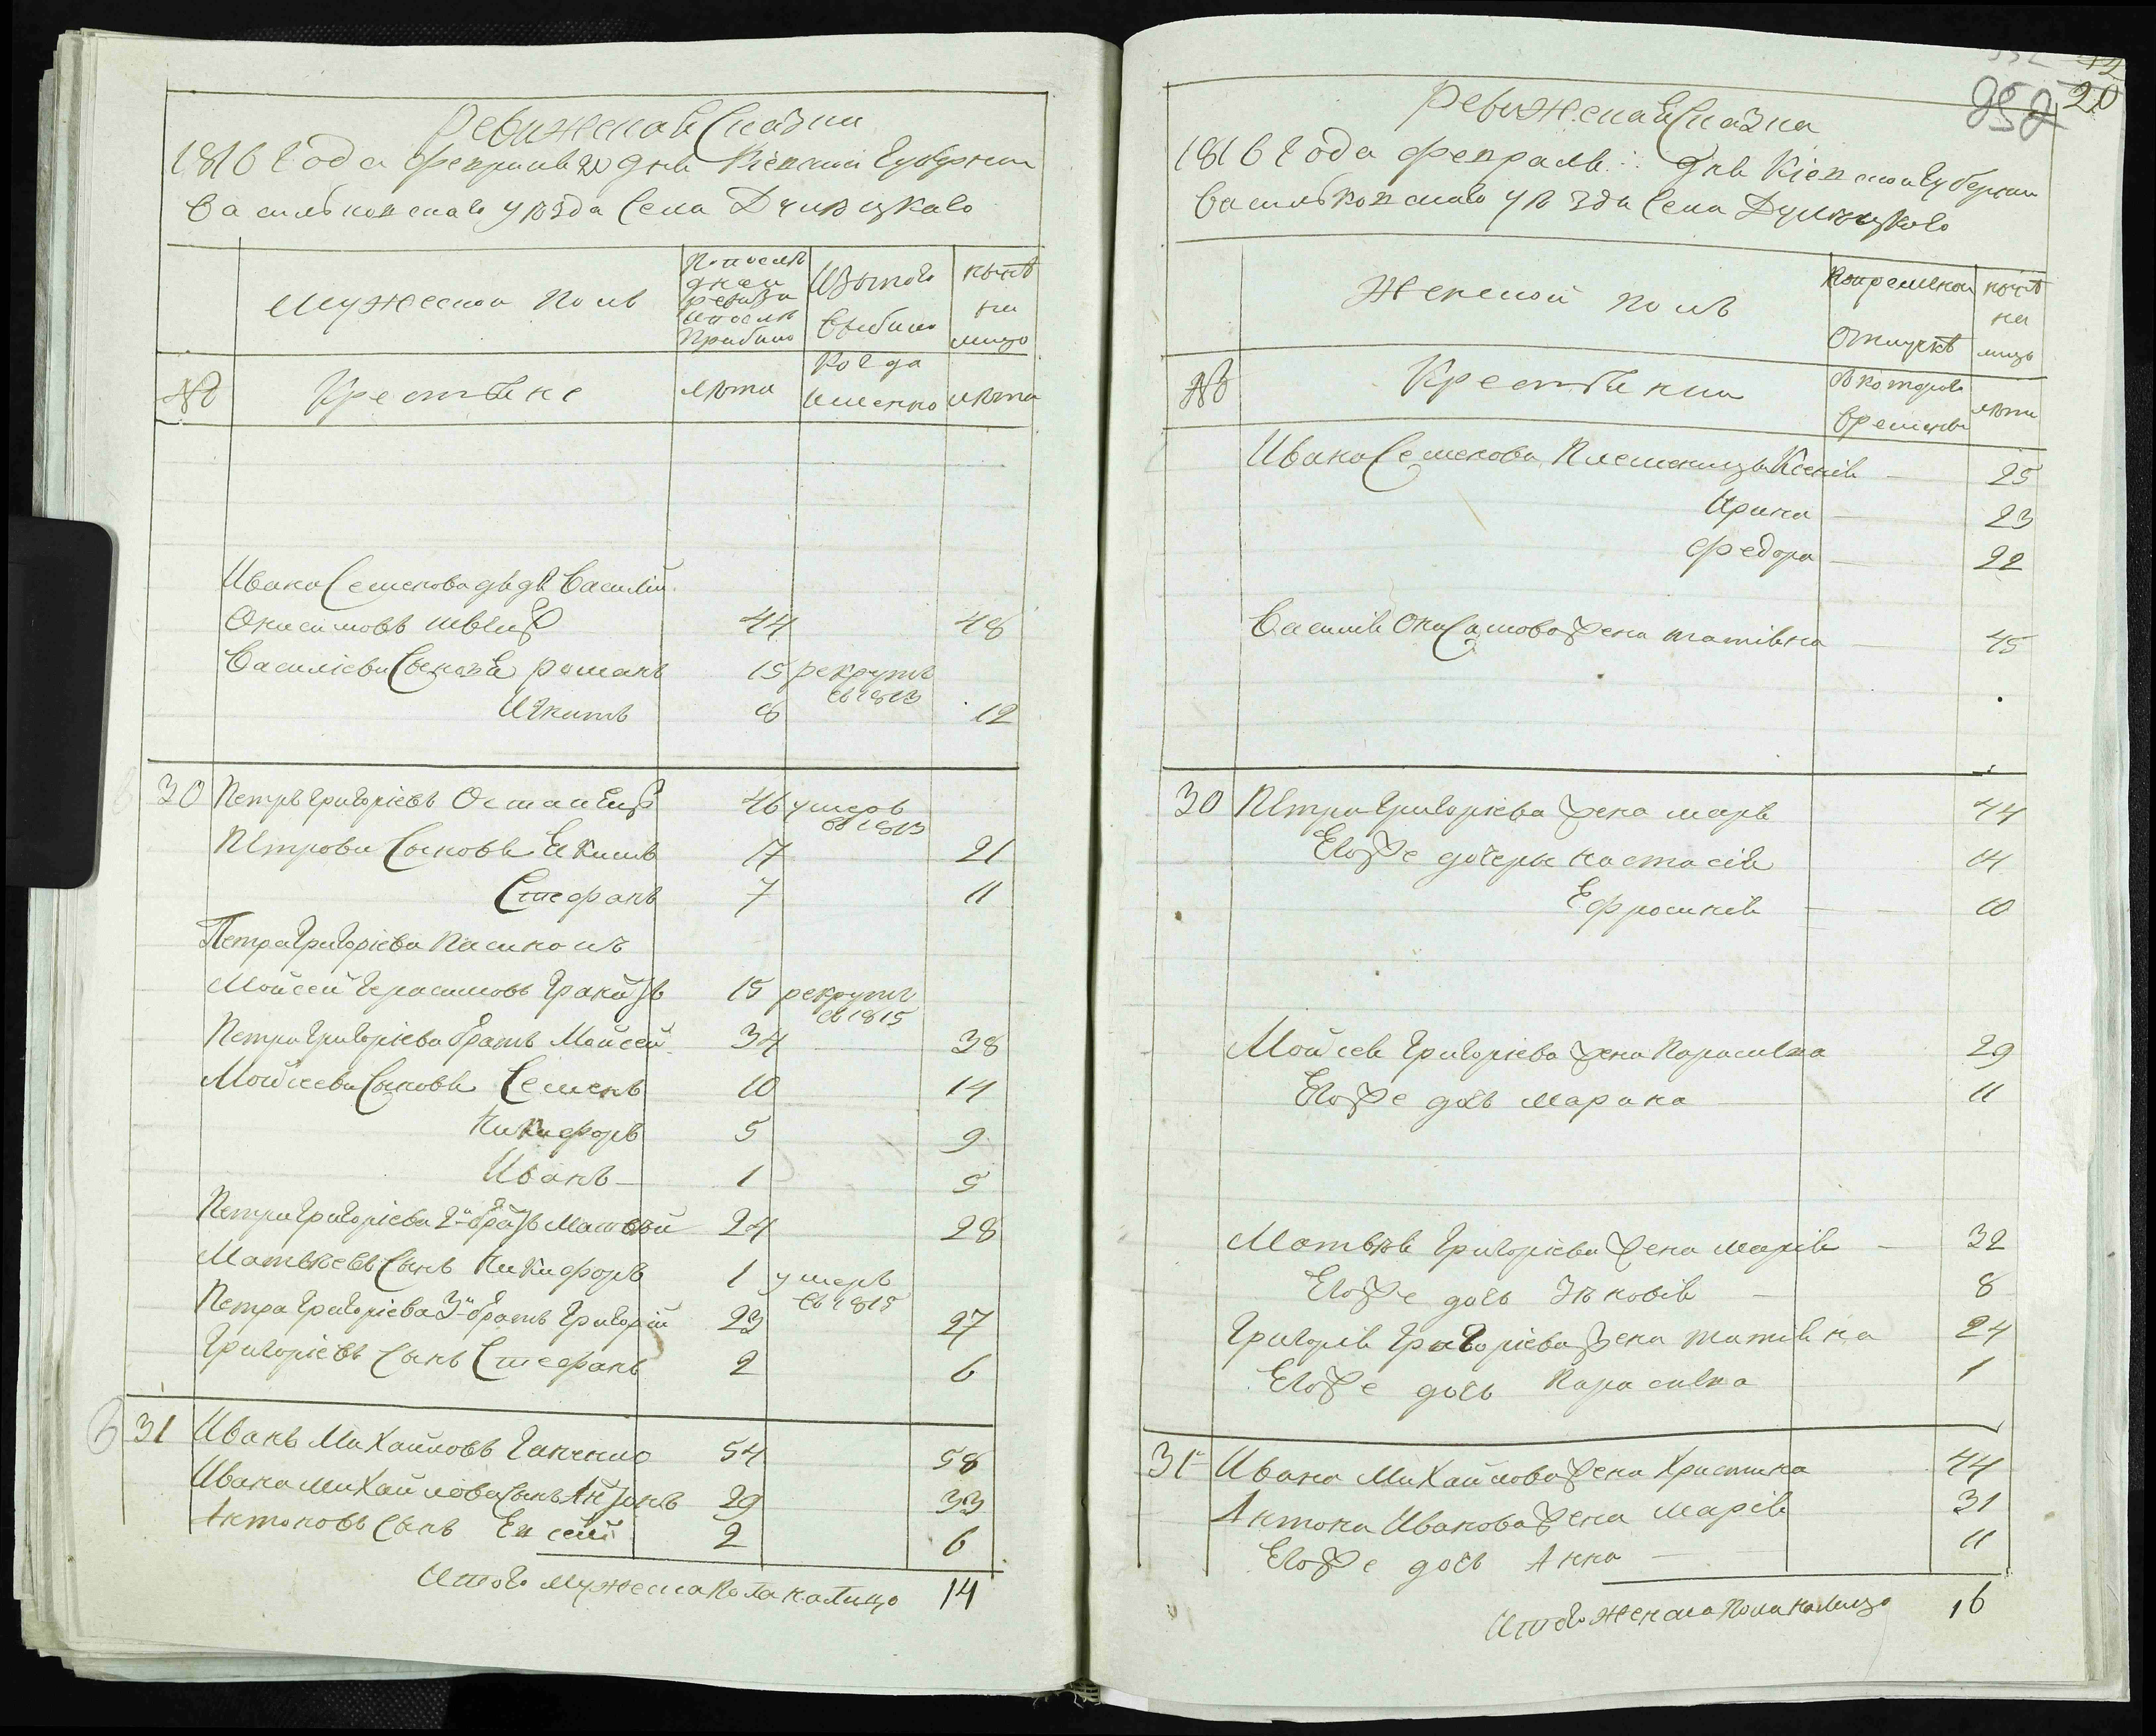 Ревижская Сказка
1816 Года февраля 20 дня Кіевской Губерніи
Васильковскаго уѣзда Села
Мужеской полъ
По послѣдней ревизіи и послѣ прибыло
Изътого выбыло
нынѣ на лицо
№
Крестьяне
лѣта
когда именно
лѣта
Ивана Семенова дядя Василій
Онисимовъ Швецъ 44 48
Василіевы Сыновья Романъ 15 рекрутъ
въ 1813
Игнатъ 8 12
30 Петръ Григоріевъ 46 умеръ
въ 1813
Петровы Сыновья Екимъ 17 21
Стефанъ 7 11
Петра Григоріева
Мойсей Герасимовъ 15 рекрутъ
въ 1815
Петра Григоріева братъ Мойсей 34 38
Мойсеевы Сыновья Семенъ 10 14
Никифоръ 5 9
Иванъ 1 5
Петра Григоріева 2й братъ Матвѣй 24 28
Матвѣевъ Сынъ Никифоръ 1 умеръ
въ 1815
Петра Григоріева 3й братъ Григорій 23 27
Григоріевъ Сынъ Стефанъ 2 6
31 Иванъ Михайловъ Ганченко 54 58
Ивана Михайлова Сынъ Антонъ 29 33
Антоновъ Сынъ 2 6
Итого Мужеска пола на лицо 14
20
952
Ревижская Сказка
1816 Года февраля дня Кіевской Губерніи
Васильковскаго уѣзда Села
Женской полъ
Вовременной отлучкѣ
нынѣ на лицо
№
Крестьянки
Съ котораго времени
лѣта
Ивана Семенова племенница Ксенія 25
Ирина 23
Федора 22
Василія Онисимова жена татіяна 45
30 Петра Григоріева жена маря 44
Егоже дочеры настасія 14
Ефросинія 10
Мойсея Григоріева жена Парасква 29
Егоже дочь марина 11
Матвѣя Григоріева жена марія 32
Егоже дочь Зѣновія 8
Григорія Григоріева жена татіяна 24
Егоже дочь Парасква 1
31 Ивана Михайлова жена Христина 44
Антона Иванова жена марія 31
Егоже дочь Анна 11
Итого женска пола на лицо 16